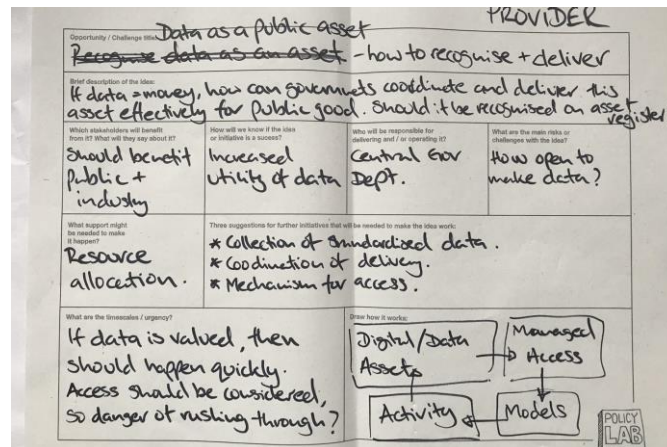 PROVIDER
Opportunity / Challenge title: Data as a public asset
Recognise data as an asset - how to recognise + deliver
Brief description of the idea:
If data = money, how can governmets coordinate and deliver this
asset effectively for public good. Should it be recognised on asset
register
Which stakeholders will benefit
from it? What will they say about it?
Should benefit
public +
industry
How will we know if the idea
or initiative is a success?
Increased
utility of data
Who will be responsible for
delivering and / or operating it?
Central Gov
Dept.
What are the main risks or
challenges with the idea?
How open to
make data?
What support might
be needed to make
it happen?
Resource
allocation.
Three suggestions for further initiatives that will be needed to make the idea work:
* Collection of standardised data.
* Coodination of delivery.
* Mechanism for access.
What are the timescales / urgency?
If data is valued, then
should happen quickly.
Access should be considered,
so danger of rushing through?
Draw how it works:
Digital/Data
Assets
Managed
Access
Activity
Models
POLICY
LAB